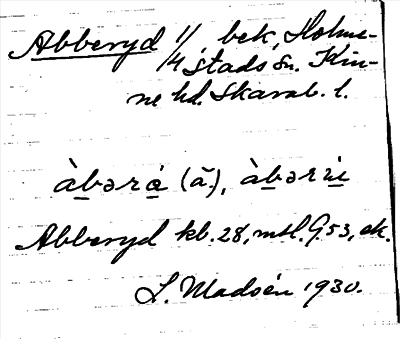 Abberyd 1/4 bek, Holme-
stads sn. Kin-
ne hd. Skarab. l.
àbərá̱ (ā.), àbərù̱
Abberyd kb. 28, mtl. 9.53, ek.
L. Madsén 1930.